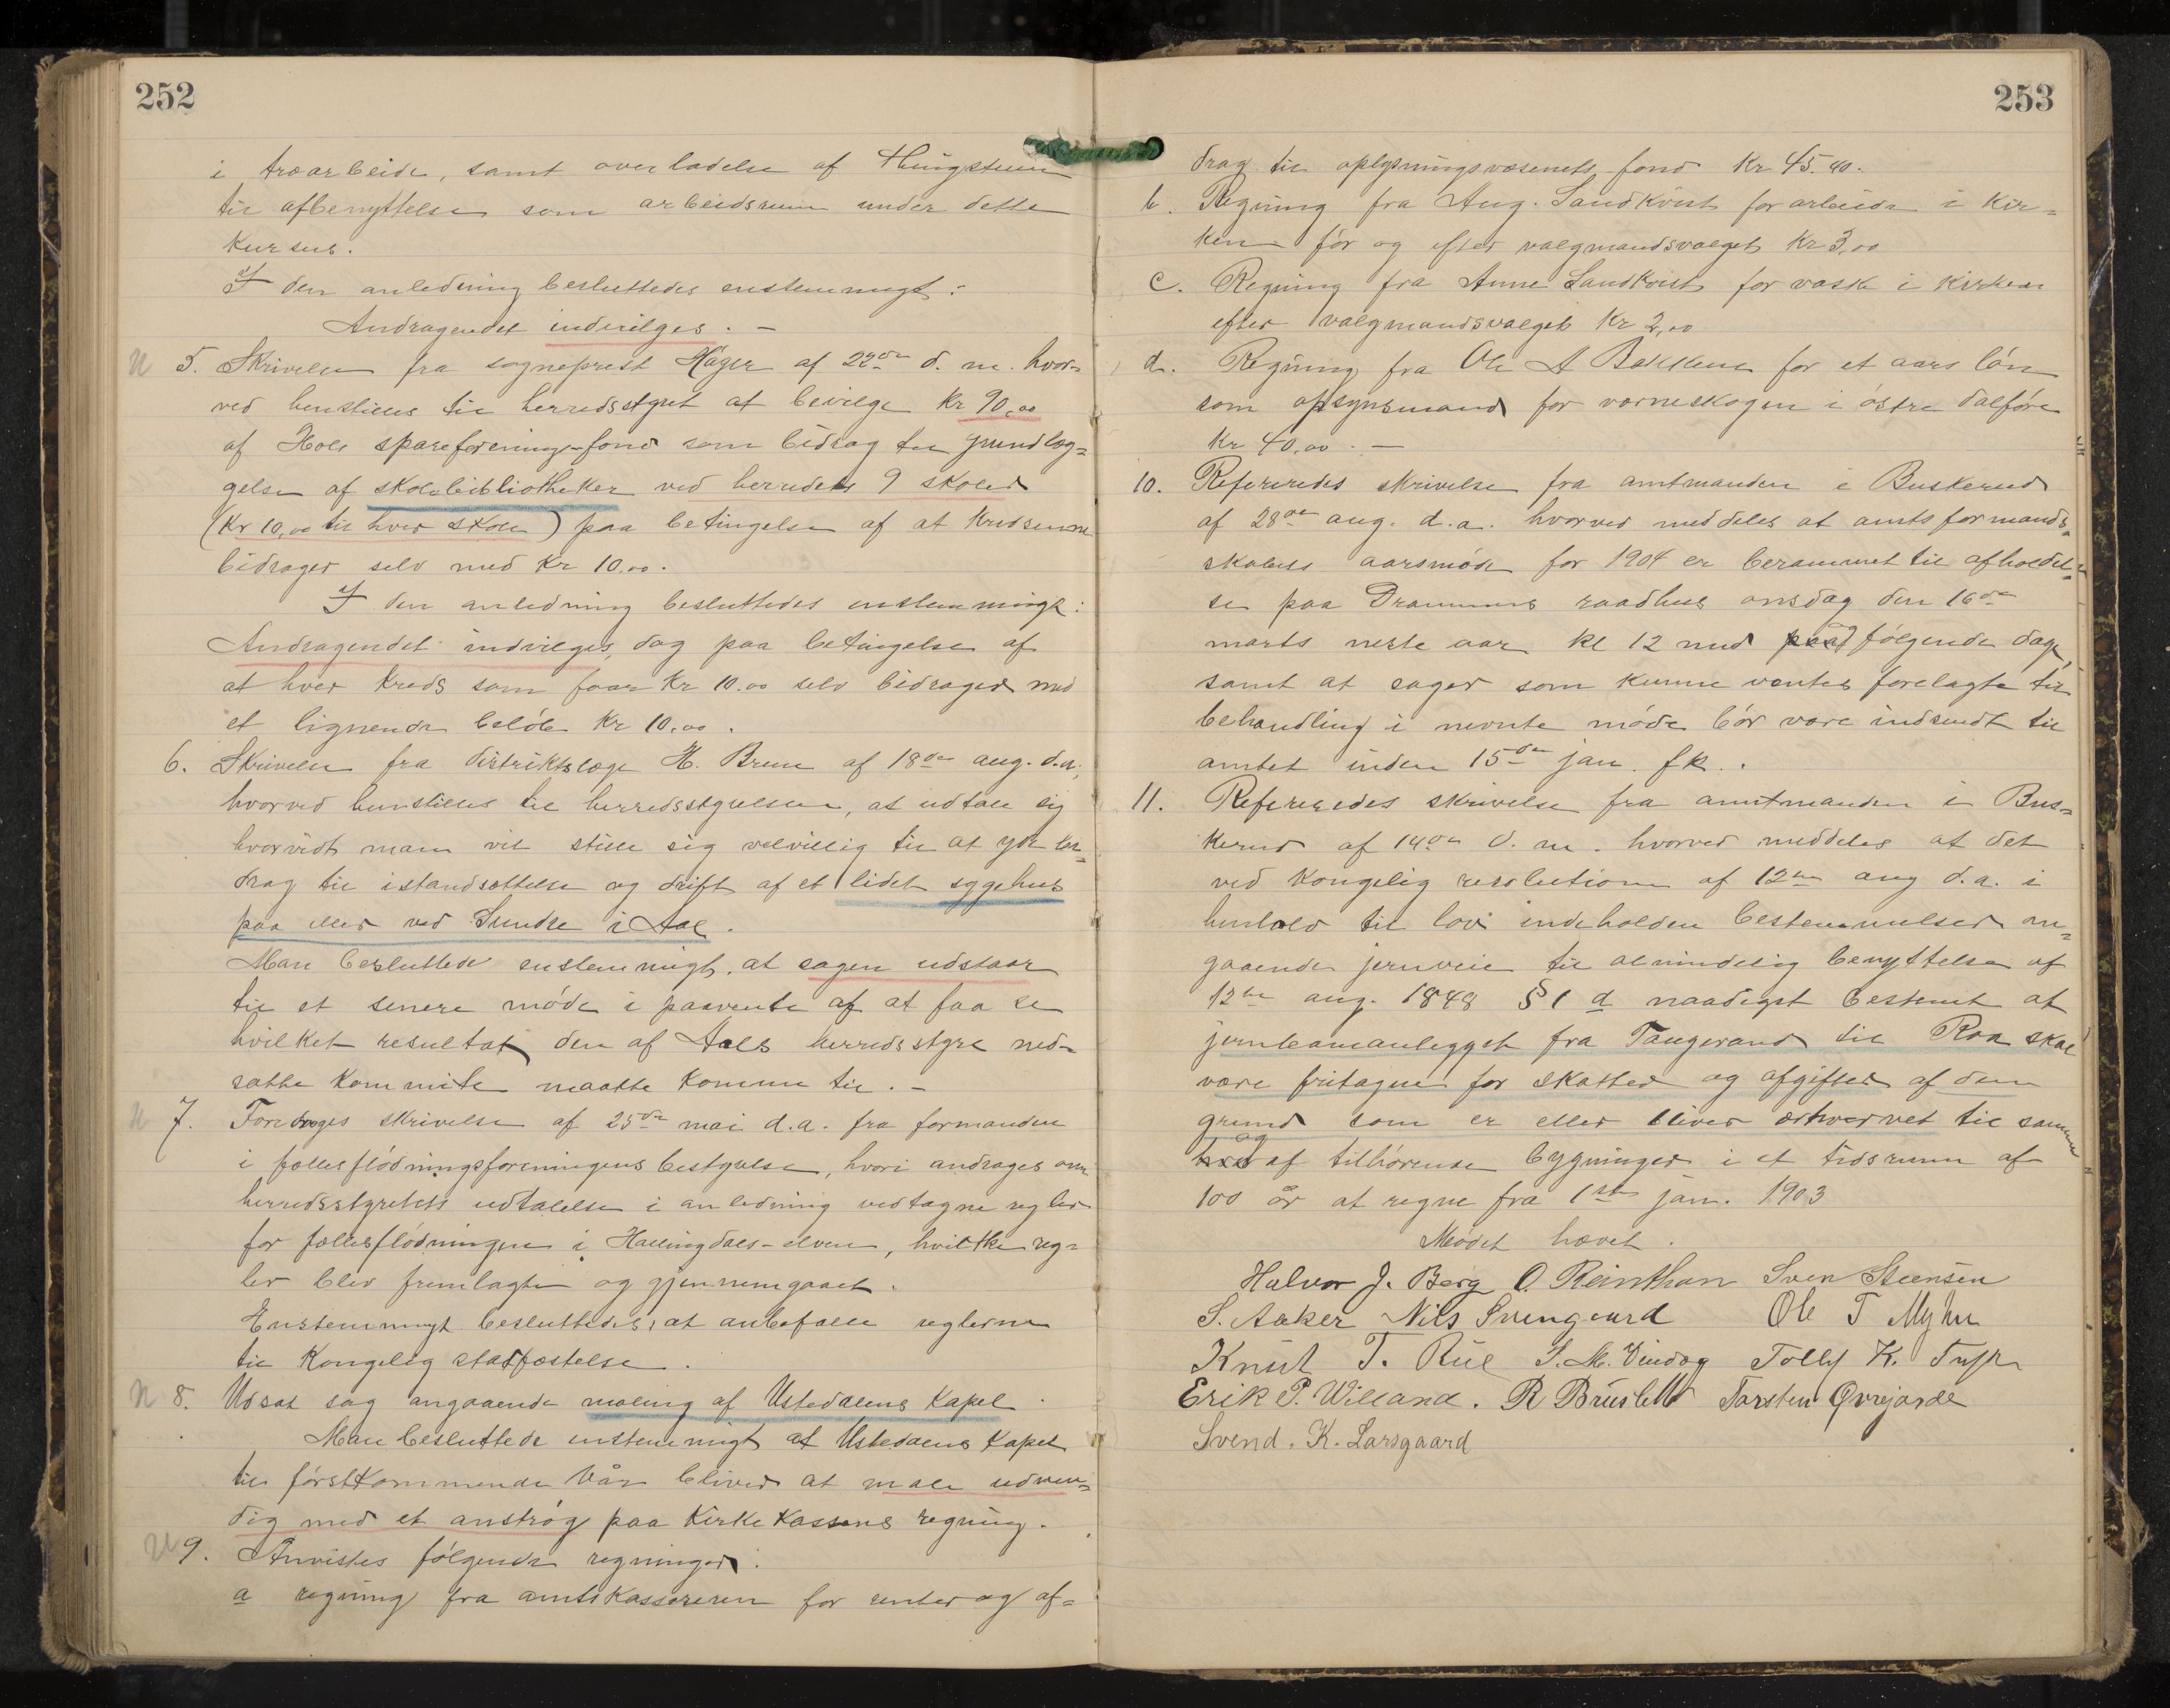 252
i træarbeide, samt overladelse af thingstuen
til afbenyttelse som arbeidsrum under dette
kursus.
I den anledning besluttedes enstemmigt:
Andragendet indvilges. –
5. Skrivelse fra sogneprest Høyer af 22de d. m. hvor=
ved henstilles til herredsstyret at bevilge Kr 90,00
af Hols spareforenings-fond som bidrag til grundlæg=
gelse af skolebibliotheker ved herredets 9 skoler
(Kr 10,00 til hver skole) paa betingelse af at kredsene
bidrager selv med Kr 10.00.
I den anledning besluttedes enstemmigt:
Andragendet indvilges, dog paa betingelse af
at hver kreds som faar Kr 10.00 selv bidrager med
et lignende beløb Kr 10.00.
6. Skrivelse fra distriktslæge H. Brun af 18de aug. d.a.,
hvorved henstilles til herredsstyrelsen, at udtale sig
hvorvidt man vil stille sig velvillig til at yde bi=
drag til istandsættelse og drift af et lidet sygehus
paa eller ved Sundre i Aal.
Man besluttede enstemmigt, at sagen udstaar
til et senere møde i paavente af at faa se
hvilket resultat den af Aals herredsstyre ned-
satte kommite maatte komme til. –
7. Foredroges skrivelse af 25de mai d.a. fra formanden
i fællesflødningsforeningens bestyrelse, hvori andrages om
herredsstyrets udtalelse i anledning vedtagne regler
for fællesflødningen i Hallingdals-elven, hvilke reg=
ler blev fremlagte og gjennemgaaet.
Enstemmigt besluttedes, at anbefale reglerne
til Kongelig stadfæstelse.
8. Udsat sag angaaende maling af Ustedalens Kapel.
Man besluttede enstemmigt at Ustedalens Kapel
til førstkommende Vår bliver at male udven=
dig med et anstrøg paa Kirkekassens regning.
9. Anvistes følgende regninger:
a regning fra amtskassereren for renter og af=
253
drag til oplysningsvæsenets fond Kr 45.40.
b. Regning fra Aug. Sandkvist for arbeide i kir=
ken før og efter valgmandsvalget Kr 3,00
c. Regning fra Anne Sandkvist for vask i kirken
efter valgmandsvalget Kr 2,00
d. Regning fra Ole A Bakken for et aars løn
som opsynsmand for værneskogen i østre dalføre
Kr 40,00. –
10. Refereredes skrivelse fra amtmanden i Buskerud
af 28de aug. d.a. hvorved meddeles at amtsformands=
skabets aarsmøde for 1904 er berammet til afholdel=
se paa Drammens raadhus onsdag den 16de
marts neste aar kl 12 med paa følgende dage,
samt at sager som kunne ventes forelagte til
behandling i nevnte møde bør være indsendt til
amtet inden 15de jan. fk.
11. Refereredes skrivelse fra amtmanden i Bus=
kerud af 14de d. m. hvorved meddeles at det
ved Kongelig resolution af 12te aug d.a. i
henhold til lov indeholden bestemmelser an=
gaaende jernveie til almindelig benyttelse af
12te aug. 1848 § 1 d naadigst bestemt at
jernbaneanlegget fra Tangerand til Roa skal
være fritagne for skatter og afgifter af den
grund som er eller bliver erhvervet til samme
og af tilhørende bygninger i et tidsrum af
100 år at regne fra 1ste jan. 1903
Mødet hævet.
Halvor J. Berg O. Reinthon Sven Steensen
S. Aaker Nils Svengaard Ole T Myhre
Knut T. Rue S. M. Vindeg Tollef K. Tufte
Erik P. Willand. R Bruslett Torsten Øvrejorde
Svend. K. Larsgaard